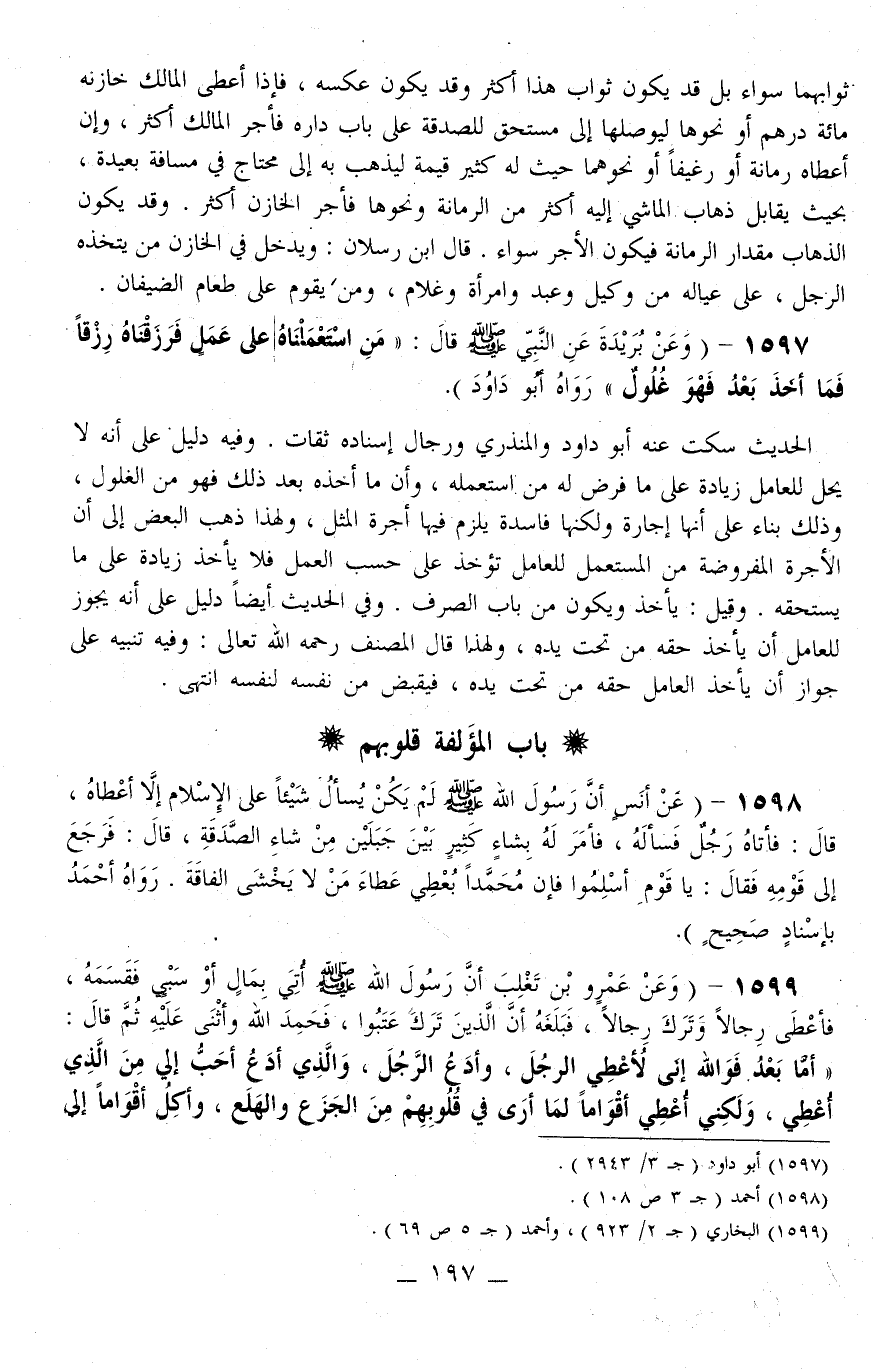 ثوابهما سواء بل قد يكون ثواب هذا أكثر وقد يكون عكسه ، فإذا أعطى المالك خازنه
مائة درهم أو نحوها ليوصلها إلى مستحق للصدقة على باب داره فأجر المالك أكثر ، وإن
أعطاه رمانة أو رغيفاً أو نحوهما حيث له كثير قيمة ليذهب به إلى محتاج في مسافة بعيدة ،
بحيث يقابل ذهاب الماشي إليه أكثر من الرمانة ونحوها فأجر الخازن أكثر . وقد يكون
الذهاب مقدار الرمانة فيكون الأجر سواء . قال ابن رسلان : ويدخل في الخازن من يتخذه
الرجل ، على عياله من وكيل وعبد وامرأة وغلام ، ومن يقوم على طعام الضيفان .
١٥٩٧ - ( وَعَنْ بُرَيْدَةَ عَنِ النَّبِيِّ ﷺ قالَ : « مَنِ اسْتَعْمَلْنَاهُ على عَمَلٍ فَرَزَقْنَاهُ رِزْقاً
فَمَا أخَذَ بَعْدُ فَهْوَ غُلُولٌ » رَوَاهُ أَبُو دَاوُدَ ).
الحديث سكت عنه أبو داود والمنذري ورجال إسناده ثقات . وفيه دليل على أنه لا
يحل للعامل زيادة على ما فرض له من استعمله ، وأن ما أخذه بعد ذلك فهو من الغلول ،
وذلك بناء على أنها إجارة ولكنها فاسدة يلزم فيها أجرة المثل ، ولهذا ذهب البعض إلى أن
الأجرة المفروضة من المستعمل للعامل تؤخذ على حسب العمل فلا يأخذ زيادة على ما
يستحقه . وقيل : يأخذ ويكون من باب الصرف . وفي الحديث أيضاً دليل على أنه يجوز
للعامل أن يأخذ حقه من تحت يده ، ولهذا قال المصنف رحمه الله تعالى : وفيه تنبيه على
جواز أن يأخذ العامل حقه من تحت يده ، فيقبض من نفسه لنفسه انتهى .
باب المؤلفة قلوبهم
١٥٩٨ - ( عَنْ أنَسٍ أنَّ رَسُولَ الله ﷺ لَمْ يَكُنْ يُسألُ شَيْئاً على الإِسْلام إلَّا أعْطاهُ ،
قالَ : فأتاهُ رَجُلٌ فَسألَهُ ، فأمَرَ لَهُ بِشاءٍ كَثِيرٍ بَيْنَ جَبَلَيْنِ مِنْ شاءِ الصَّدَقَةِ ، قالَ : فَرَجَعَ
إلى قَوْمِهِ فَقالَ : يا قَوْمِ أسْلِمُوا فإن مُحَمَّداً يُعْطِي عَطاءَ مَنْ لا يَخْشَى الفاقَةَ . رَوَاهُ أحْمَدُ
بإِسْنادٍ صَحِيحٍ ).
١٥٩٩ - ( وَعَنْ عَمْرِو بْن تَغْلِبَ أنَّ رَسُولَ الله ﷺ أُتِيَ بِمَالٍ أوْ سَبْيٍ فَقَسَمَهُ ،
فأعْطَى رِجالاً وَتَرَكَ رِجالاً ، فَبَلَغَهُ أنَّ الَّذينَ تَرَكَ عَتَبُوا ، فَحَمِدَ الله وأثْنَى عَلَيْهِ ثُمَّ قالَ :
« أمَّا بَعْدُ فَوَالله إنِّى لأُعْطِي الرجُلَ ، وأدَعُ الرَّجُلَ ، وَالَّذِي أدَعُ أحَبُّ إلي مِنَ الَّذِي
أُعْطِي ، وَلَكِني أُعْطِي أقْوَاماً لمَا أرَى في قُلُوبِهِمْ مِنَ الجَزَع والهَلَع ، وأكِلُ أقْوَاماً إلى
(١٥٩٧) أبو داود ( جـ ٣/ ٢٩٤٣ ) .
(١٥٩٨) أحمد ( جـ ٣ ص ١٠٨ ) .
(١٥٩٩) البخاري ( جـ ٢/ ٩٢٣ ) ، وأحمد ( جـ ٥ ص ٦٩ ) .
— ١٩٧ —